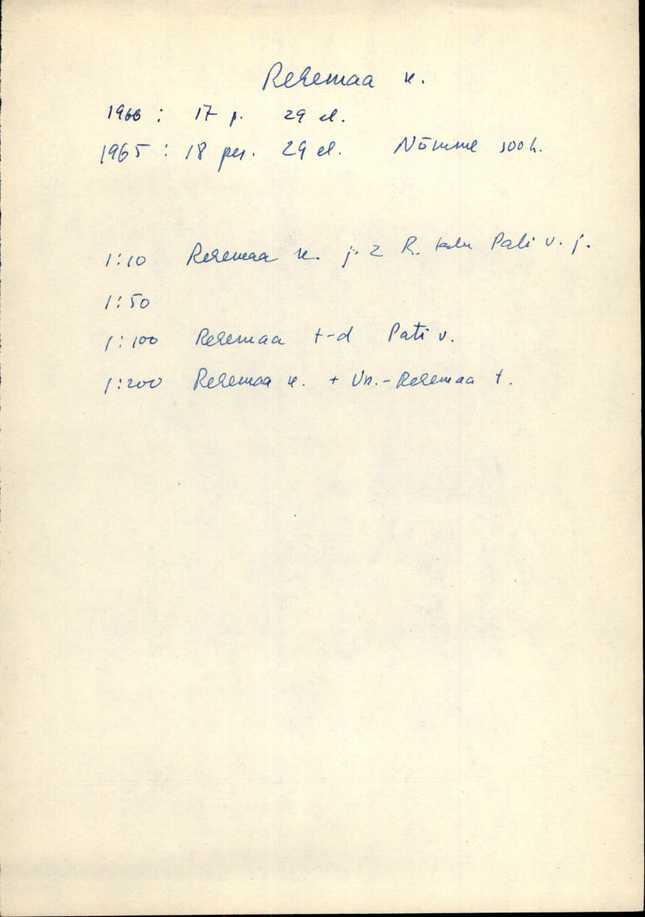 Rehemaa k.
1966 : 17 p. 29 el.
1965 : 18 per. 29 el. Nõmme sooh.
1:10 Rehemaa k. j. 2 R. talu Pati v. j.
1:50
1:100 Rehemaa t-d Pati v.
1:200 Rehemaa k. + Un.-Rehemaa t.